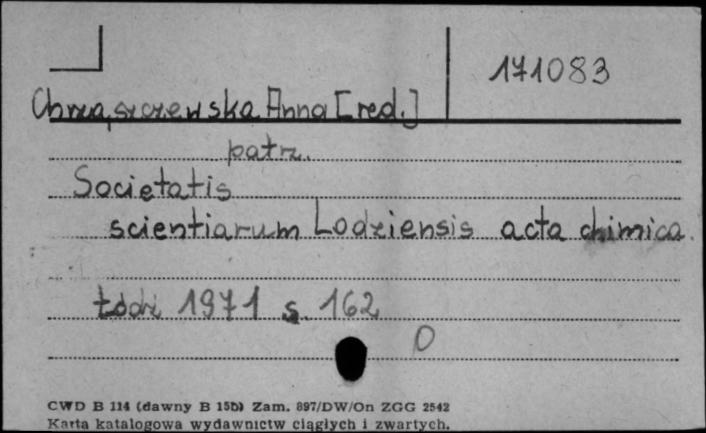 171083
Chrząszczewska Anna [red.]
patrz.
Societatis
scientiarum Lodziensis acta chimica.
Łódź 1971 s. 162
0
CWD B 114 (dawny B 15b) Zam. 897/DW/On ZGG 2542
Karta katalogowa wydawnictw ciągłych i zwartych.